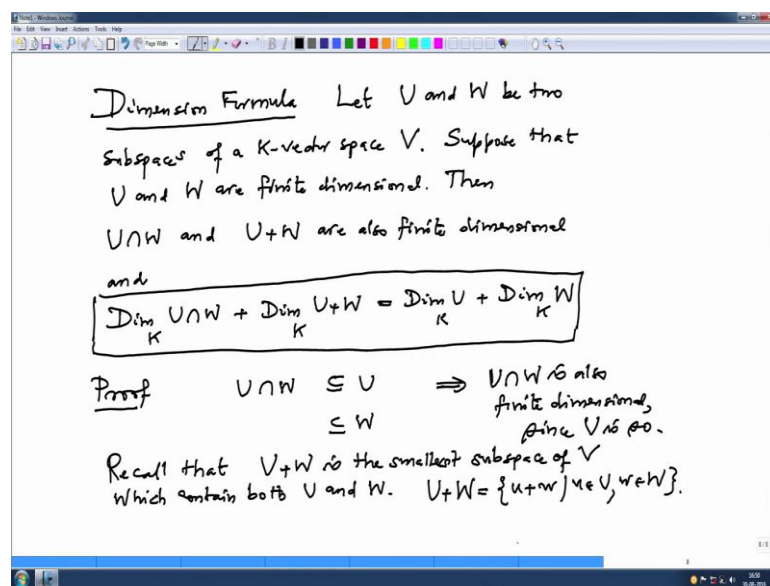 Note1 - Windows Journal
File Edit View Insert Actions Tools Help
Page Width
Dimension Formula Let U and W be two
subspaces of a K-vector space V. Suppose that
U and W are finite dimensional. Then
U∩W and U+W are also finite dimensional
and
Dim_K U∩W + Dim_K U+W = Dim_K U + Dim_K W
Proof U∩W ⊆ U ⇒ U∩W is also
finite dimensional,
⊆ W
since U is so.
Recall that U+W is the smallest subspace of V
which contain both U and W. U+W = {u+w | u∈U, w∈W}.
8/8
8
16:50